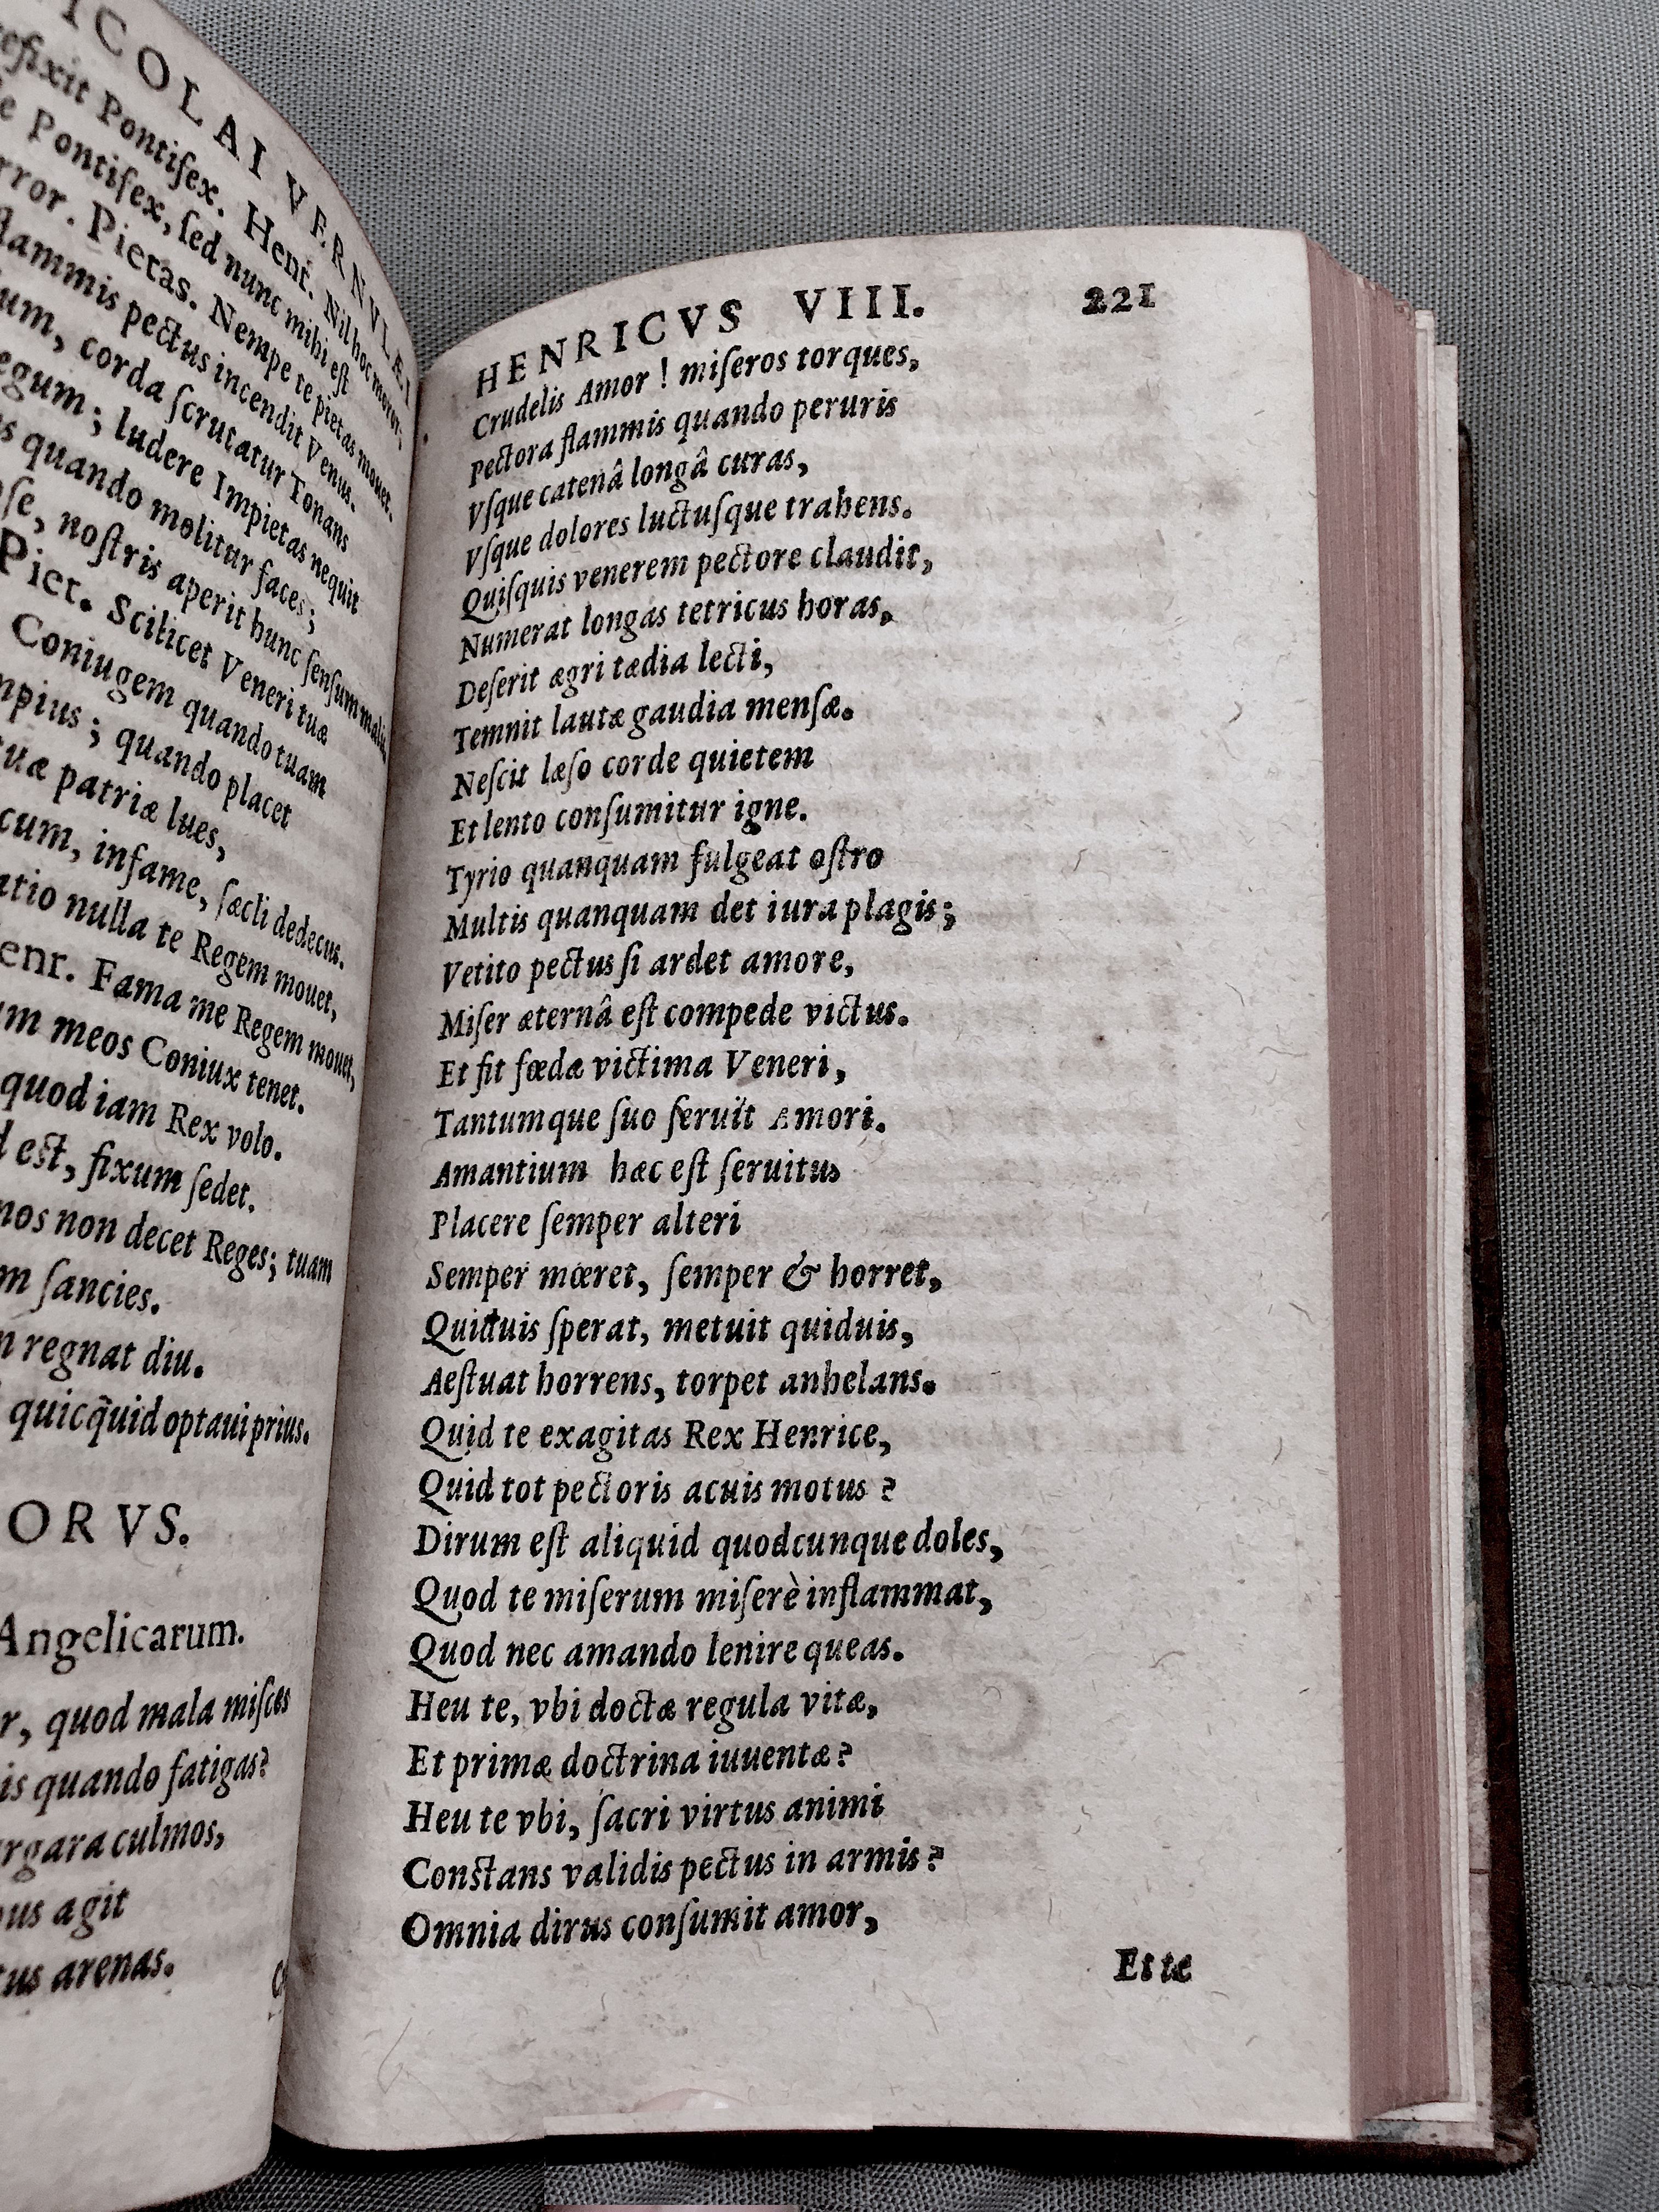 NICOLAI VERNULÆI
Pontifex. Henr. Nil hoc moror,
Pontifex, ſed nunc mihi eſt
Pietas. Nempe te pietas mouet.
pectus incendit Venus.
corda ſcrutatur Tonans
ludere Impietas nequit
quando molitur faces;
noſtris aperit hunc ſenſum
Piet. Scilicet Veneri tuæ
Coniugem quando tuam
quando placet
patriæ lues,
infame, ſæcli dedecus.
nulla te Regem mouet,
Fama me Regem mouet,
meos Coniux tenet.
quod iam Rex volo.
est, fixum ſedet.
non decet Reges; tuam
ſancies.
regnat diu.
quicq̃uid optaui prius.
ORVS.
Angelicarum.
quod mala miſces
quando fatigas?
culmos,
agit
arenas.
HENRICVS VIII. 221
Crudelis Amor ! miſeros torques,
Pectora flammis quando peruris
Vſque catenâ longâ curas,
Vſque dolores luctuſque trahens.
Quiſquis venerem pectore claudit,
Numerat longas tetricus horas,
Deſerit ægri tædia lecti,
Temnit lautæ gaudia menſæ.
Neſcit læſo corde quietem
Et lento conſumitur igne.
Tyrio quanquam fulgeat oſtro
Multis quanquam det iura plagis;
Vetito pectus ſi ardet amore,
Miſer æternâ eſt compede victus.
Et fit fœdæ victima Veneri,
Tantumque ſuo ſeruit Amori.
Amantium hæc eſt ſeruitus
Placere ſemper alteri
Semper mœret, ſemper & horret,
Quiduis ſperat, metuit quiduis,
Aeſtuat horrens, torpet anhelans.
Quid te exagitas Rex Henrice,
Quid tot pectoris acuis motus ?
Dirum eſt aliquid quodcunque doles,
Quod te miſerum miſerè inflammat,
Quod nec amando lenire queas.
Heu te, vbi doctæ regula vitæ,
Et primæ doctrina iuuentæ?
Heu te vbi, ſacri virtus animi
Constans validis pectus in armis?
Omnia dirus conſumit amor,
Et te